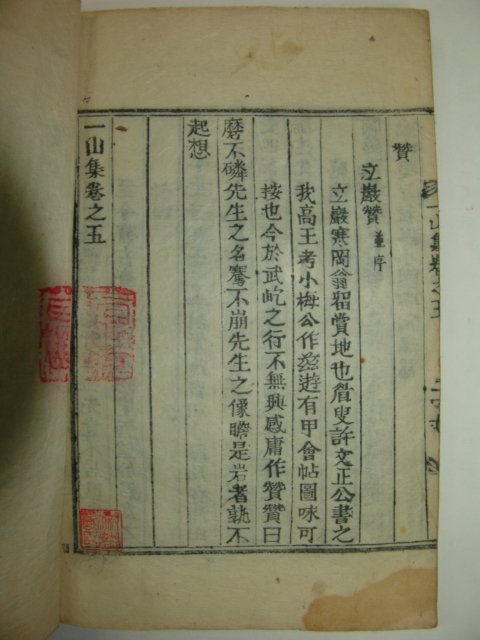 贊
立巖贊 並序
立巖寒岡翁留賞地也眉叟許文正公書之
我高王考小梅公作遊有甲會帖圖味可
按也今於武屹之行不無興感庸作贊贊曰
磨不磷先生之名騫不崩先生之像瞻是岩者孰不
起想
一山集卷之五